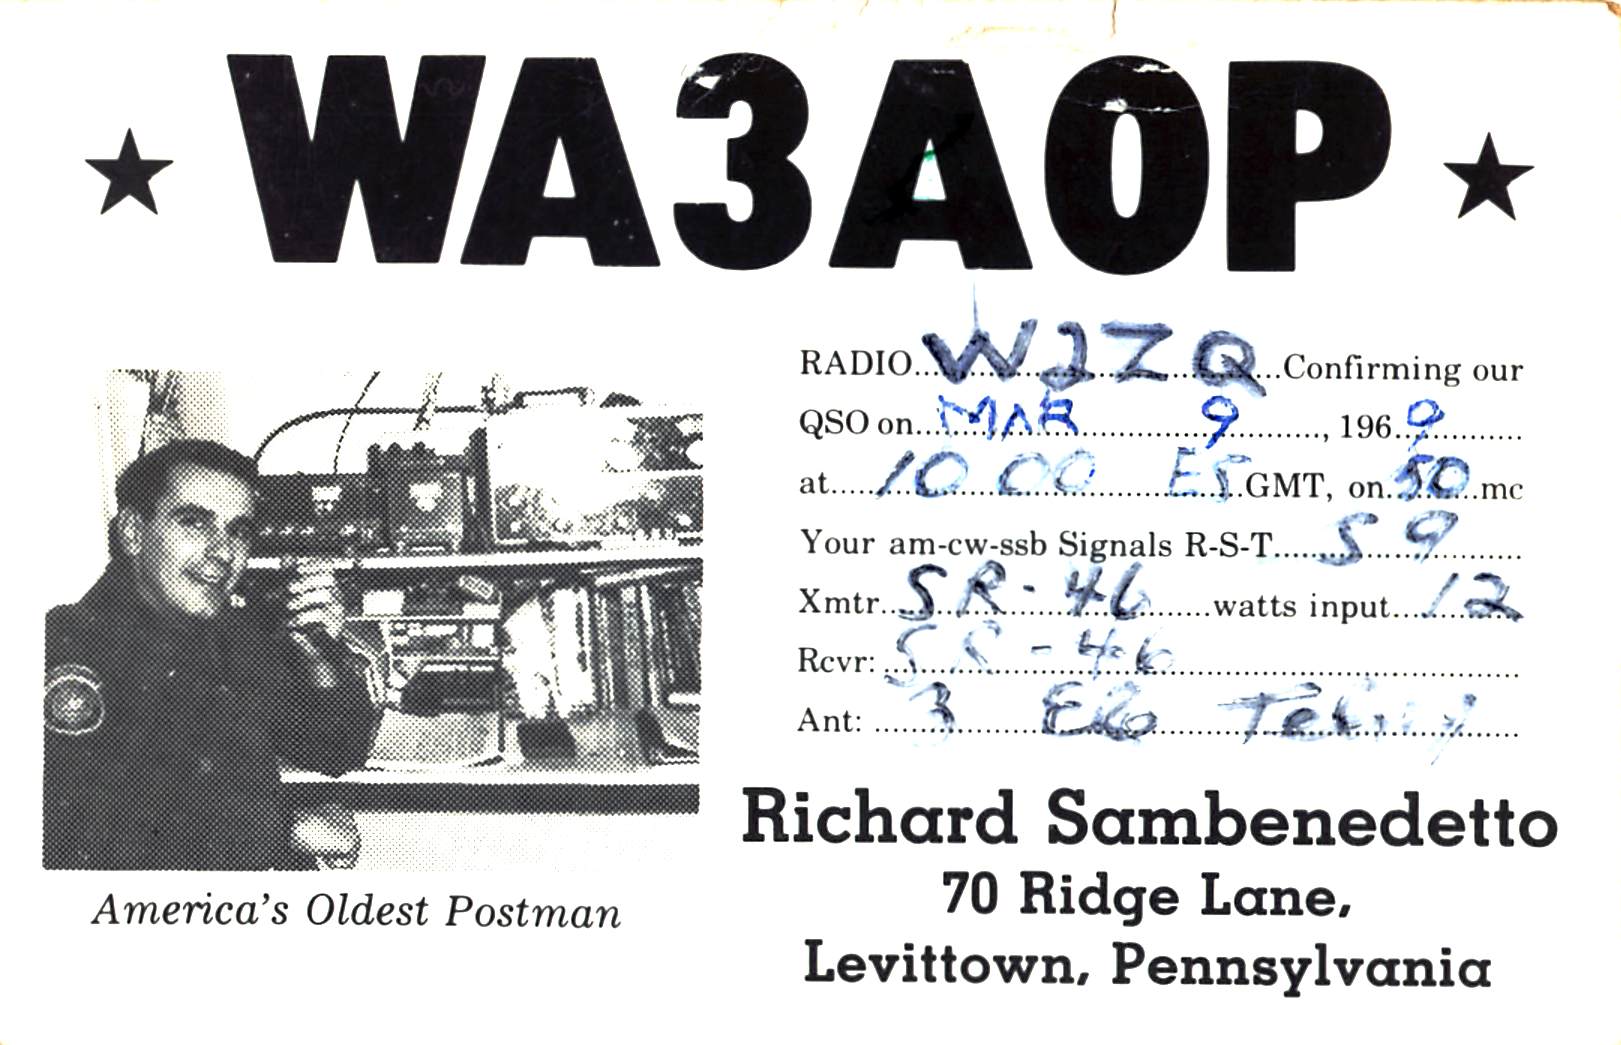 ★ WA3AOP ★
RADIO W2ZQ Confirming our
QSO on MAR 9, 1969
at 10 00 ES GMT, on 50 mc
Your am-cw-ssb Signals R-S-T 5 9
Xmtr. SR-46 watts input 12
Rcvr: SR-46
Ant: 3 Ele
America's Oldest Postman
Richard Sambenedetto
70 Ridge Lane,
Levittown, Pennsylvania